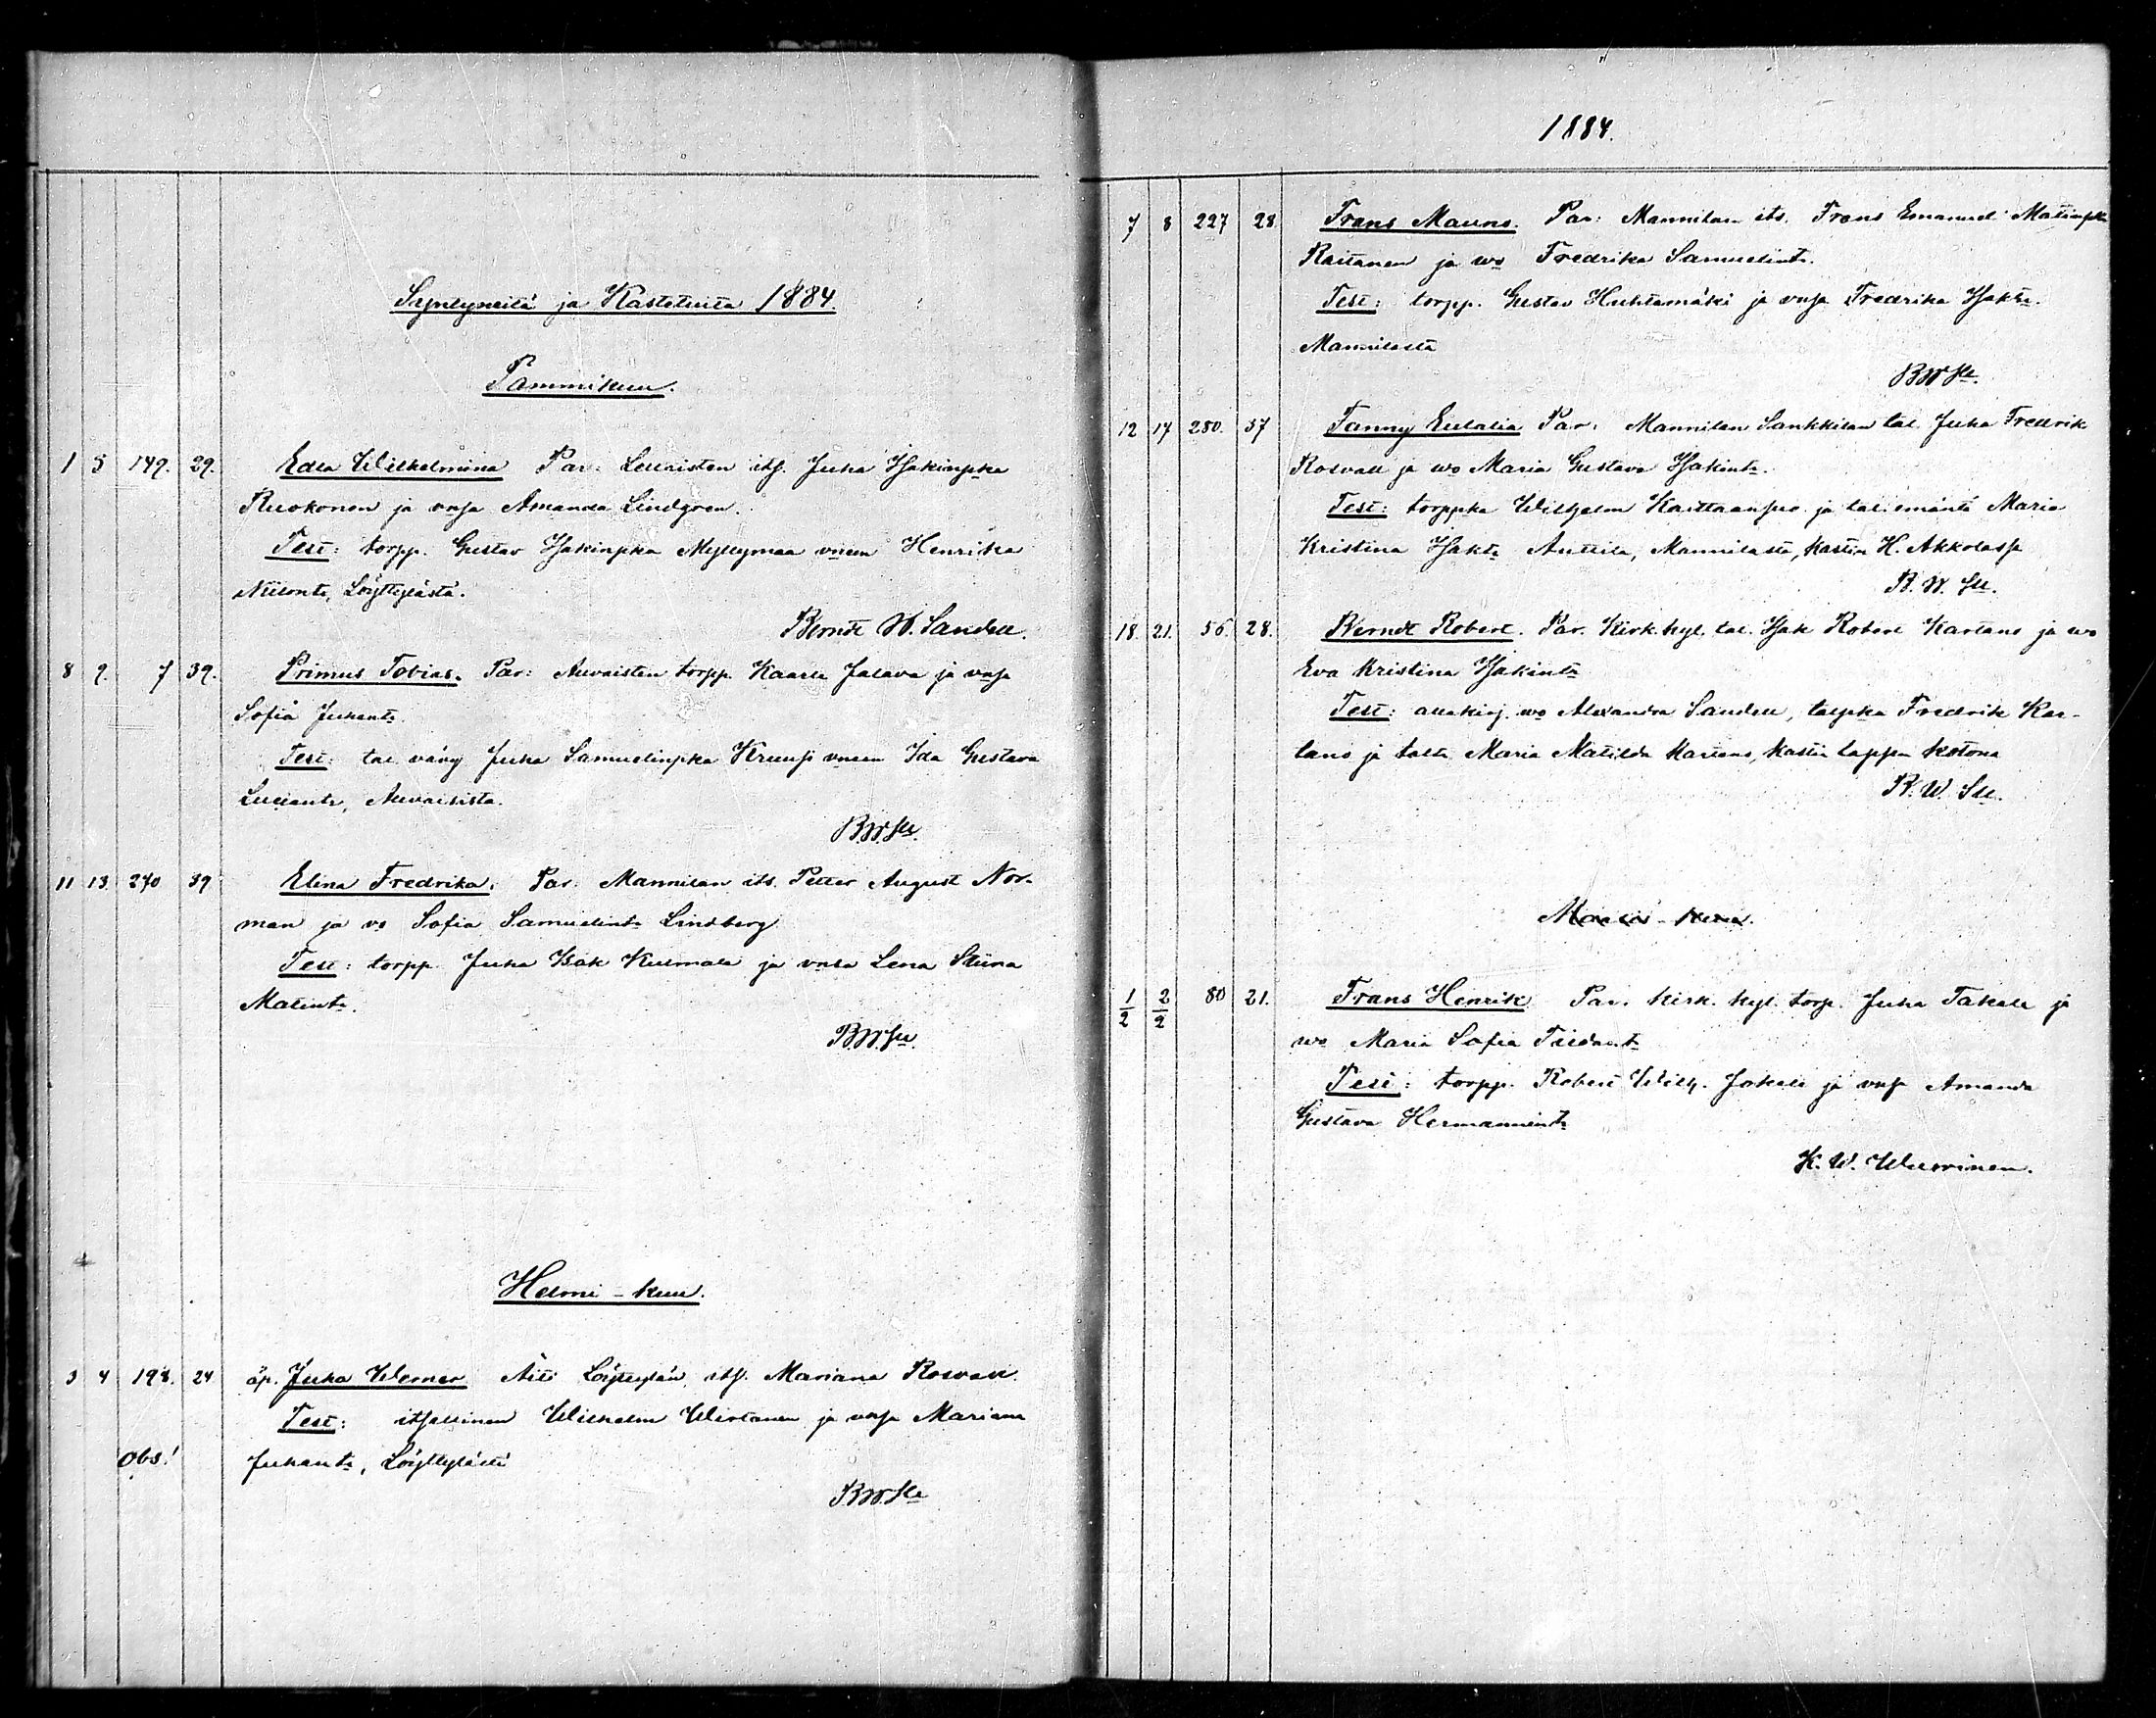 Syntyneitä ja Kastetuita 1884.
Tammikuu.
1 5 149. 29. Edla Wilhelmina Par: Leuaisten itß. Juha Isakinpka
Ruokonen ja vaßa Amanda Lindgren.
Test: torpp. Gustav Isakinpka Myllymaa vneen Henrika
Niilontr, Löyttylästä.
Berndt W. Sandell.
8 9. 7 39. Primus Tobias. Par: Auvaisten torpp. Kaarle Jalava ja vaßa
Sofia Juhantr.
Test: tal. vävy Juha Samuelinpka Kruusi vneen Ida Gustava
Auvaisista.
B.W.Sll.
11 13. 240 39 Elina Fredrika. Par: Mannilan its. Petter August Nor-
man ja vo Sofia Samuelintr Lindberg
Test: torpp. Juha Isak Kulmala ja vasa Lena Stiina
Matintr.
B.W.Sll.
Helmi-kuu.
3 4 198. 24 äp. Juha Werner Äiti Löyttylän itß. Mariana Rosvall.
Test: itsellinen Wilhelm Wirtanen ja vaßa Mariana
Obs! Juhantr, Löyttylästä
B.W.Sll
1884.
7 8 227 28. Frans Mauno. Par: Mannilan its. Frans Emanuel Matinpka
Raitanen ja wo Fredrika Samuelintr.
Test: torpp. Gustav Huhtamäki ja vaßa Fredrika Isaktr.
Mannilasta
B.W.Sll.
12 17 280. 37 Fanny Eulalia Par: Mannilan Sankkilan tal. Juha Fredrik
Rosvall ja wo Maria Gustava Isakintr.
Test: torppka Wilhelm Karttaanßuo ja tal. emäntä Maria
Kristina Isaktr Anttila, Mannilasta, kastin H. Akkolassa
B.W. Sll.
18. 21. 56. 28. Berndt Robert. Par. Kirk. kyl. tal. Isak Robert Kartano ja wo
Eva Kristina Isakintr
Test: wo Alexandra Sandell, talpka Fredrik Kar-
tano ja taltr Maria Matilda Kartano, kastin lappen kotona
B.W. Sll.
Maalis-kuu.
1/2 2/2 80 21. Frans Henrik Par. Kirk. kyl. torp. Juha Takala ja
wo Maria Sofia
Test: torpp. Robert Wilh. Jokela ja vaßa Amanda
Gustava Hermannintr
K. W. Wuorinen.